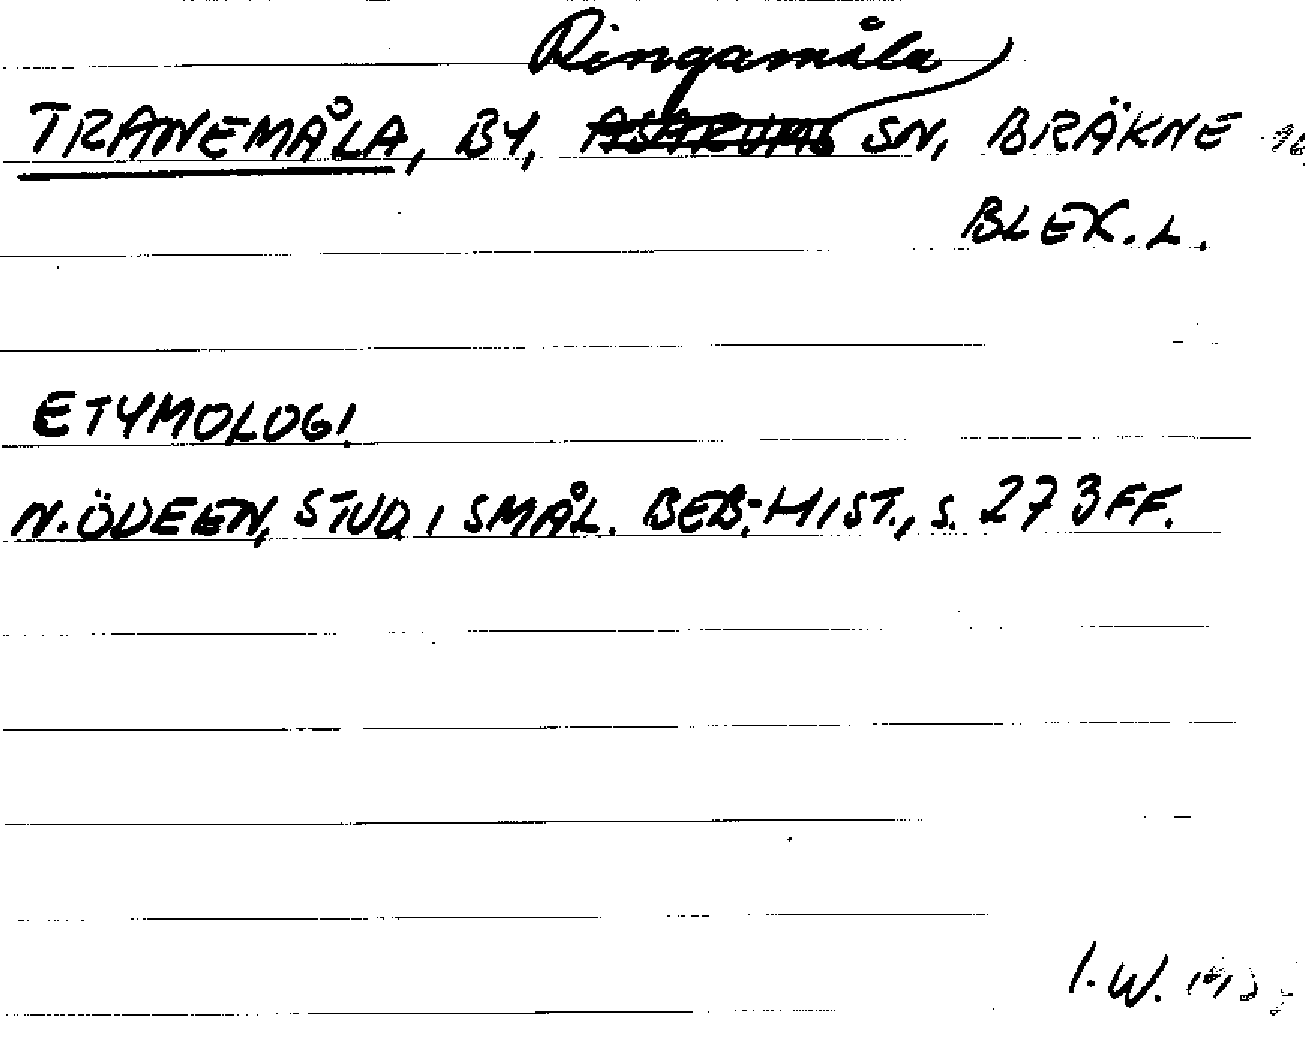 Ringamåla
TRANEMÅLA, BY, ASARUMS SN, BRÄKNE
BLEK. L.
ETYMOLOGI
N. ÖDEEN, STUD. I SMÅL. BEB.-HIST., S. 273 FF.
I. W.